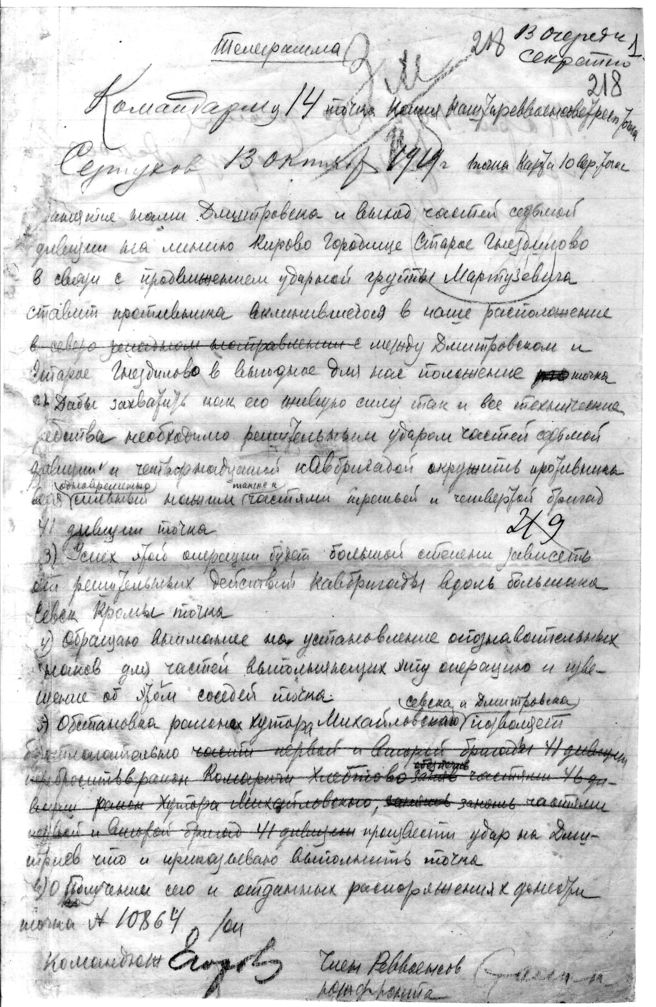 Телеграмма
218 В очередн 1
Секретно
218
Командарму 14 точка Копия Наштареввоенсовет точка
Серпухов 13 октября 1919 г точка Карта 10 вер точка
занятие нами Дмитровска и выход частей седьмой
дивизии на линию Кирово Городище Старое Гнездилово
в связи с продвижением ударной группы Мартузевича
ставит противника вклинившегося в наше расположение
в северо западном направлении с между Дмитровском и
Старое Гнездилово в выгодное для нас положение точка
2) Дабы захватить как его живую силу так и все технические
средства необходимо решительным ударом частей седьмой
дивизии и четырнадцатой кавбригадой окружить противника
одновременно также и
сильный нажим частями третьей и четвертой бригад
41 дивизии точка
219
3) Успех этой операции будет большой степени зависеть
от решительных действий кавбригады вдоль большака
Севск Кромы точка
4) Обращаю внимание на установление опознавательных
знаков для частей выполняющих эту операцию и изве-
щение об этом соседей точка
Севска и Дмитровска
5) Обстановка районе хутора Михайловский позволяет
частей первой и второй бригады 41 дивизии
в район Комаричи Хлебтово частями 46 ди-
визии район Хутора Михайловского, занять частями
первой и второй бригад 41 дивизии произвести удар на Дми-
триев что и приказываю выполнить точка
6) О получении сего и отданных распоряжениях донести
точка № 10864 /оп
Командюж Егоров Член Реввоенсов
южфронта